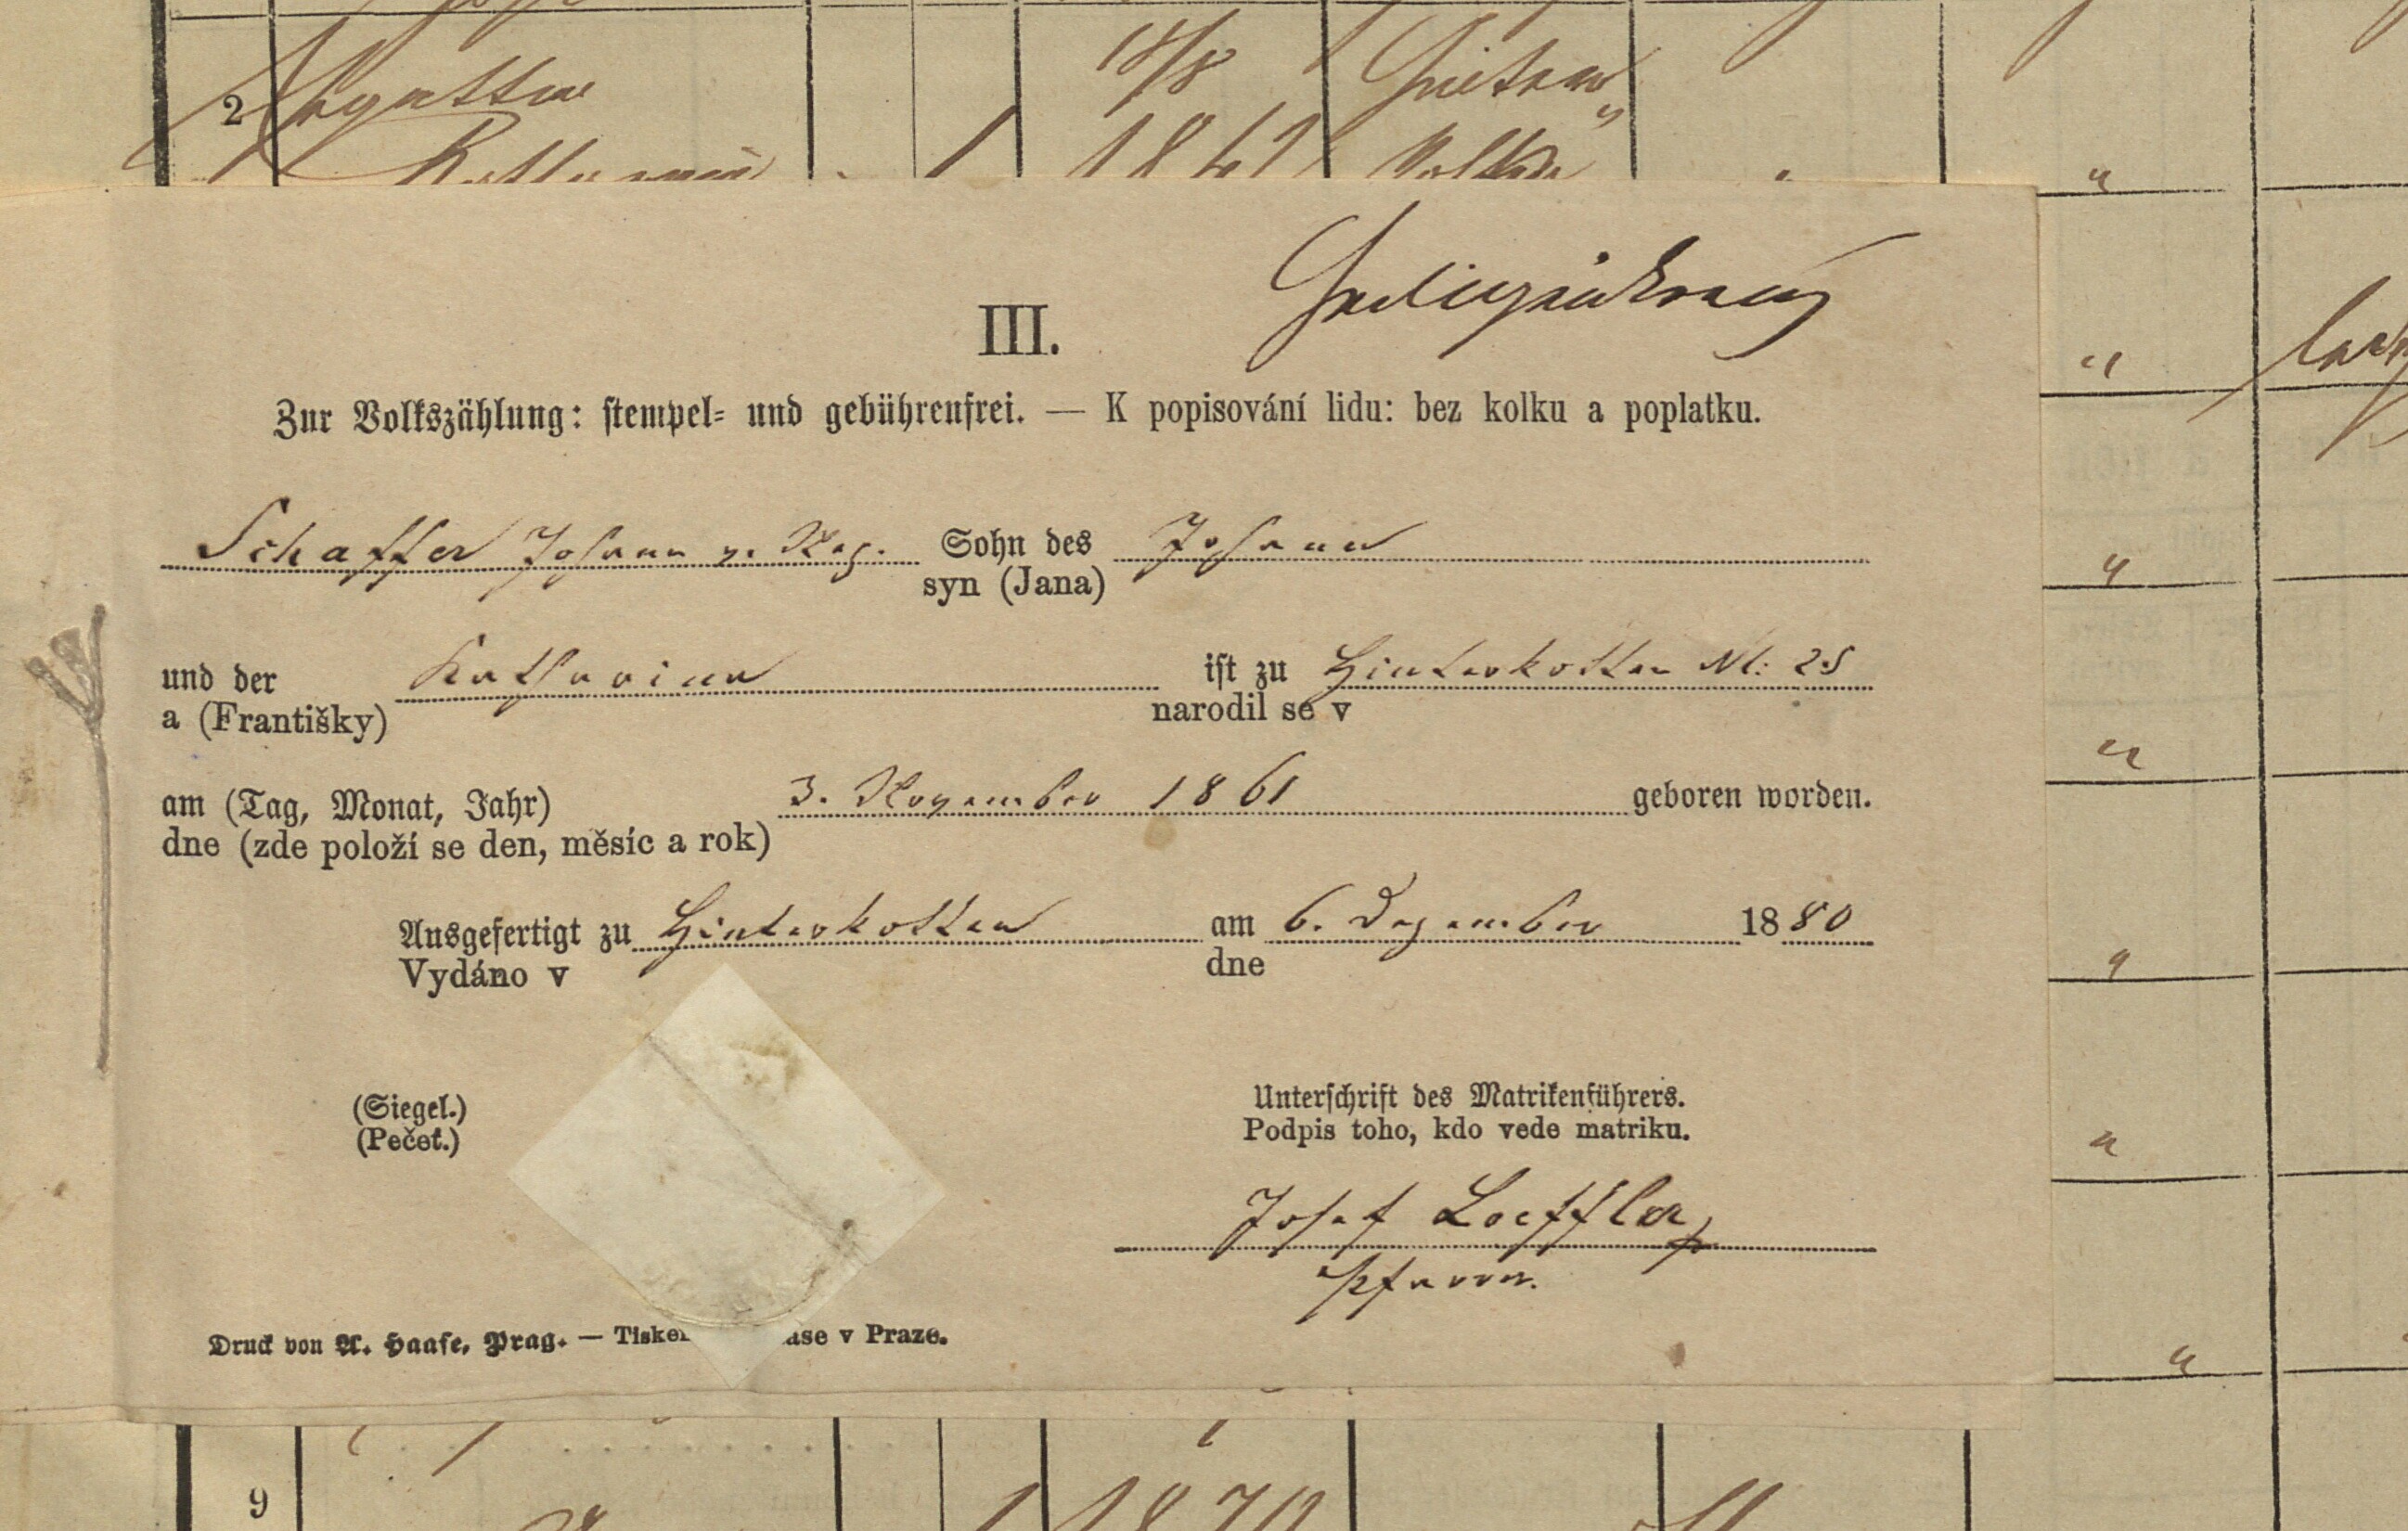 2
18/8
1 1841
III.
Zur Volkszählung: stempel- und gebührenfrei. — K popisování lidu: bez kolku a poplatku.
Schaffer Johann Sohn des Johann
syn (Jana)
und der Katharina ist zu Hinterkotten N: 25
a (Františky) narodil se v
am (Tag, Monat, Jahr) 3. November 1861 geboren worden.
dne (zde položí se den, měsíc a rok)
Ausgefertigt zu Hinterkotten am 6. Dezember 1880
Vydáno v dne
(Siegel.)
(Pečeť.)
Unterschrift des Matrikenführers.
Podpis toho, kdo vede matriku.
Josef Loeffler,
Pfarrer.
Druck von A. Haase, Prag. — v Praze.
9
1 1870